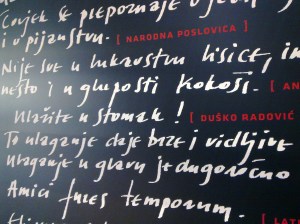 Čovjek se prepoznaje u govoru
i u pijanstvu. [ NARODNA POSLOVICA ]
Nije sve u lukavstvu lisice, im
nešto i u gluposti kokoši. [ AN
Ulažite u stomak! [ DUŠKO RADOVIĆ
To ulaganje daje brze i vidljive
Ulaganje u glavu je dugoročno
Amici fures temporum.
[ LAT